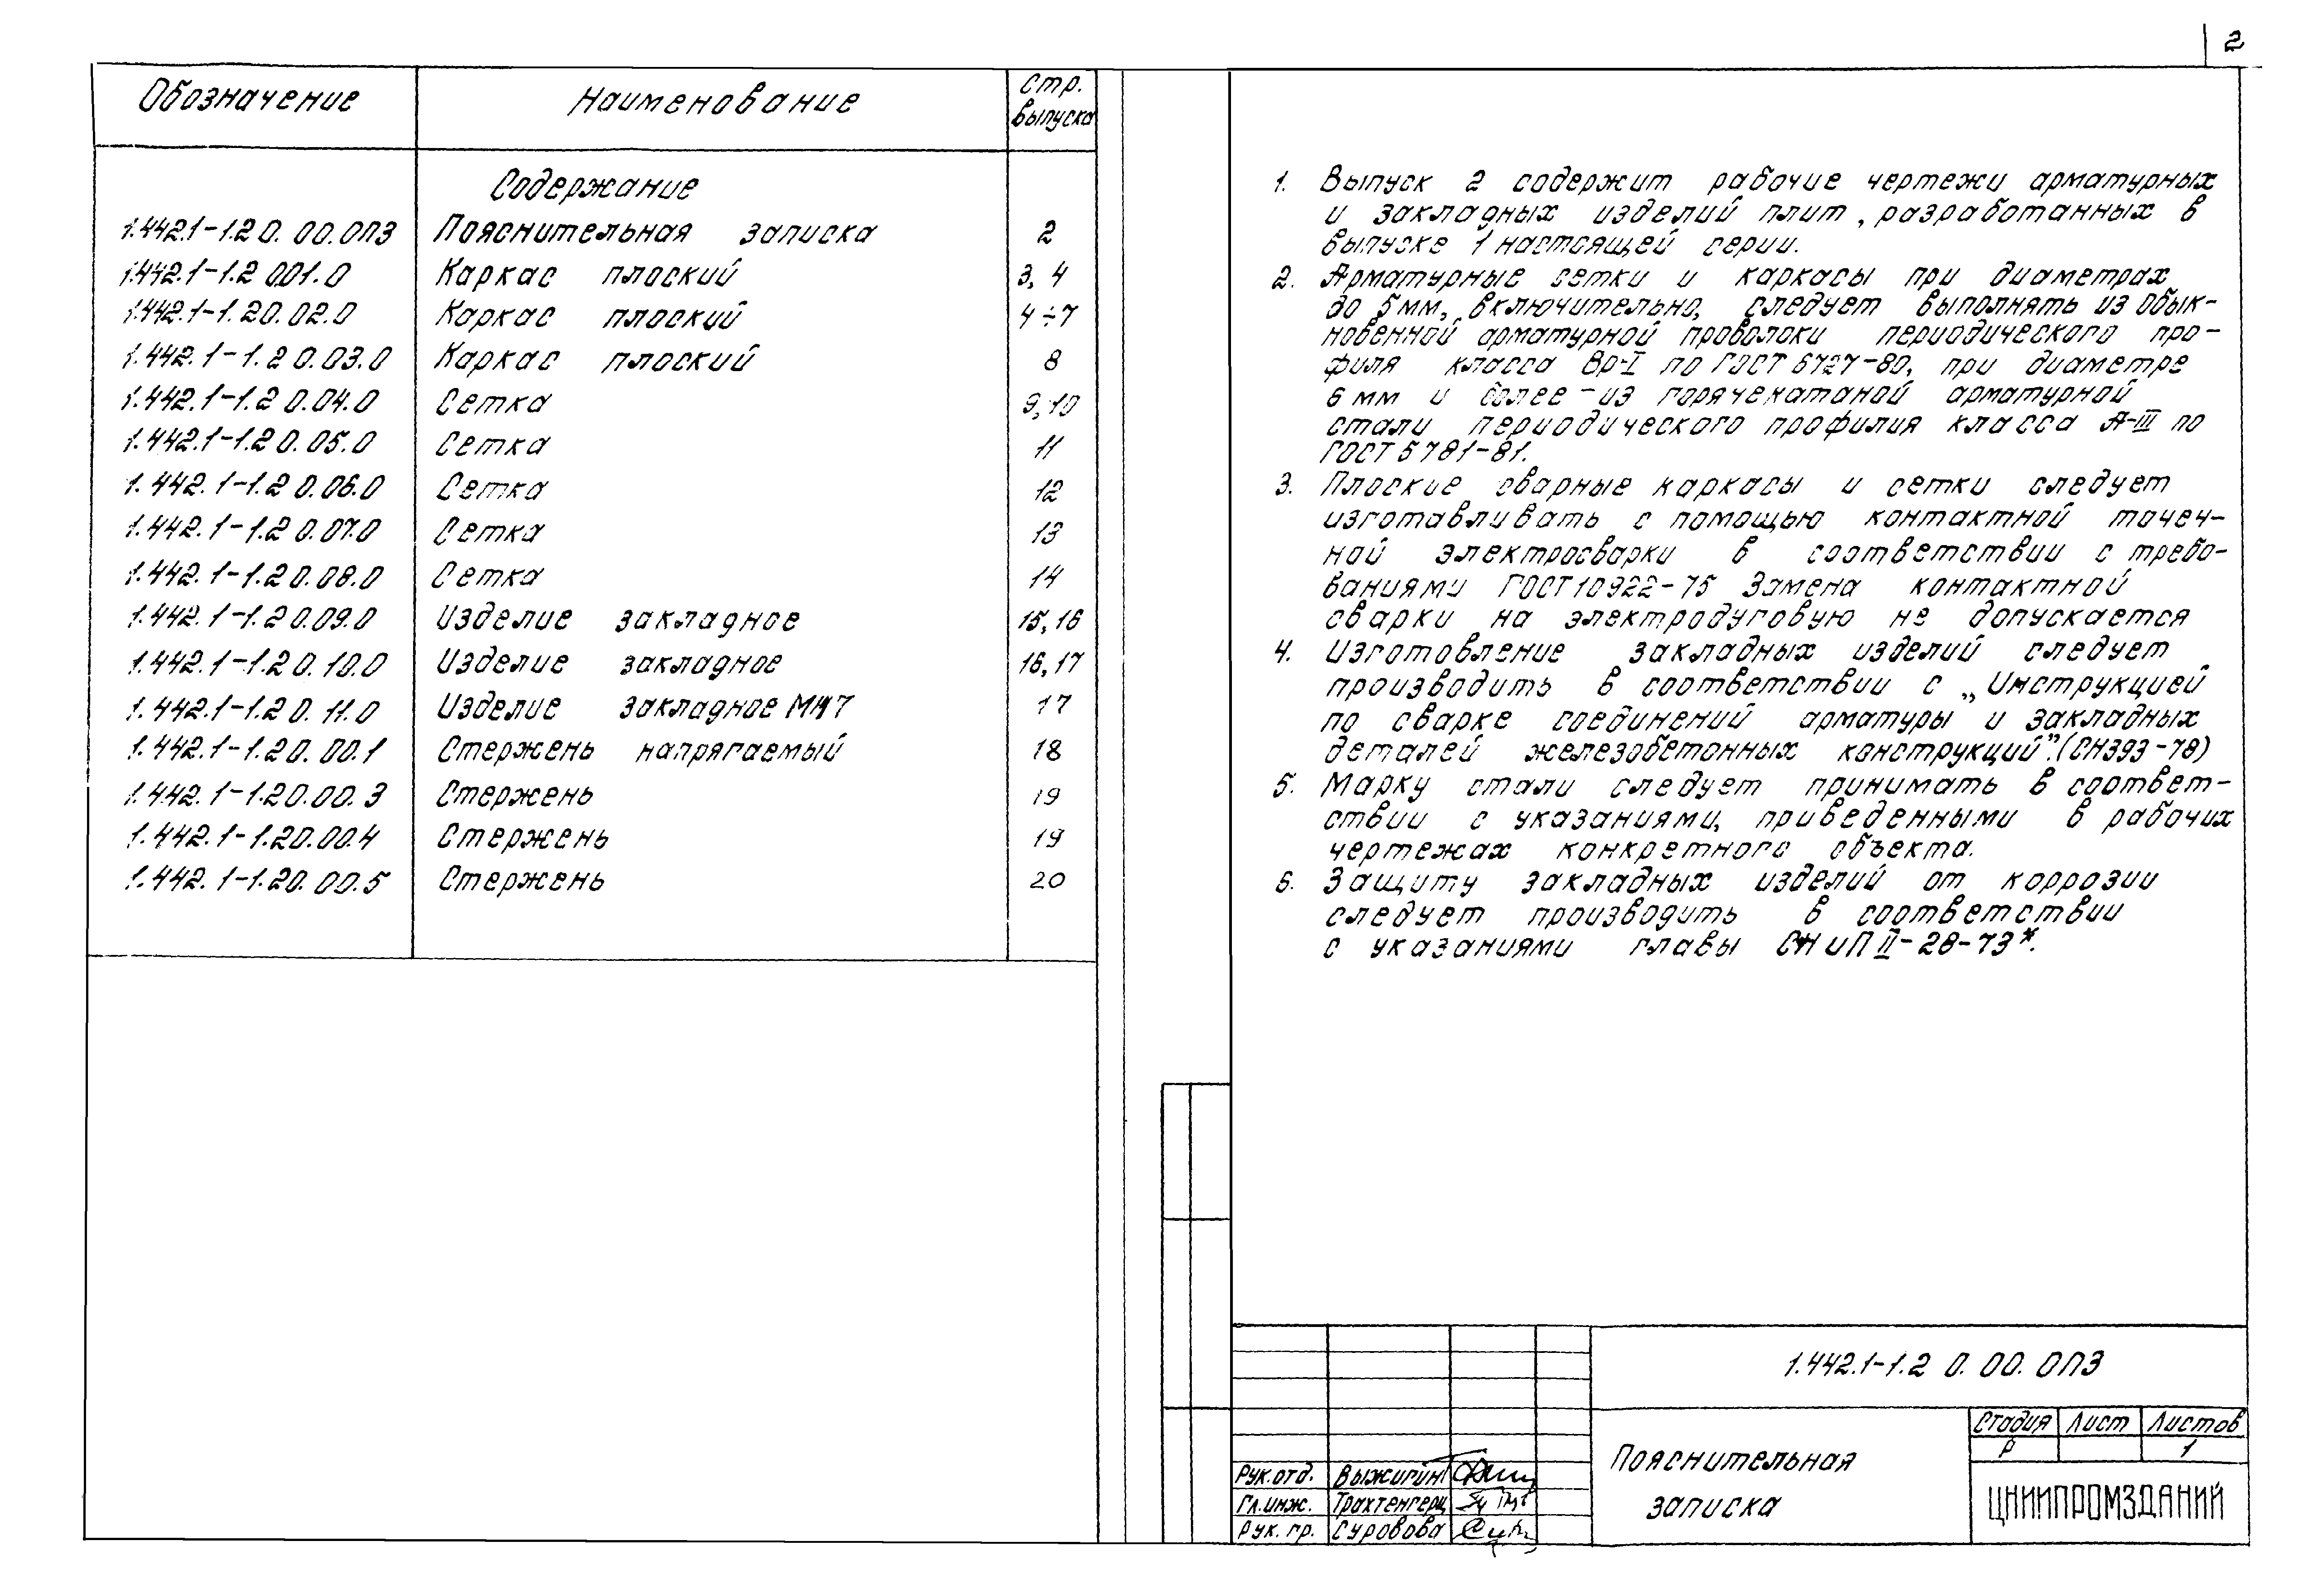 2
Обозначение Наименование Стр. выпуска
Содержание
1.442.1-1.2 0.00.0ПЗ Пояснительная записка 2
1.442.1-1.2 001.0 Каркас плоский 3, 4
1.442.1-1.20.02.0 Каркас плоский 4÷7
1.442.1-1.2 0.03.0 Каркас плоский 8
1.442.1-1.2 0.04.0 Сетка 9,10
1.442.1-1.2 0.05.0 Сетка 11
1.442.1-1.2 0.06.0 Сетка 12
1.442.1-1.2 0.07.0 Сетка 13
1.442.1-1.2 0.08.0 Сетка 14
1.442.1-1.2 0.09.0 Изделие закладное 15,16
1.442.1-1.2 0.10.0 Изделие закладное 16,17
1.442.1-1.2 0.11.0 Изделие закладное МН7 17
1.442.1-1.20.00.1 Стержень напрягаемый 18
1.442.1-1.20.00.3 Стержень 19
1.442.1-1.20.00.4 Стержень 19
1.442.1-1.20.00.5 Стержень 20
1. Выпуск 2 содержит рабочие чертежи арматурных
и закладных изделий плит, разработанных в
выпуске 1 настоящей серии.
2. Арматурные сетки и каркасы при диаметрах
до 5мм, включительно, следует выполнять из обык-
новенной арматурной проволоки периодического про-
филя класса Вр-I по ГОСТ 6727-80, при диаметре
6 мм и более - из горячекатаной арматурной
стали периодического профилия класса А-III по
ГОСТ 5781-81.
3. Плоские сварные каркасы и сетки следует
изготавливать с помощью контактной точеч-
ной электросварки в соответствии с требо-
ваниями ГОСТ 10922-75 Замена контактной
сварки на электродуговую не допускается
4. Изготовление закладных изделий следует
производить в соответствии с „Инструкцией
по сварке соединений арматуры и закладных
деталей железобетонных конструкций”.(СН393-78)
5. Марку стали следует принимать в соответ-
ствии с указаниями, приведенными в рабочих
чертежах конкретного объекта.
6. Защиту закладных изделий от коррозии
следует производить в соответствии
с указаниями главы СНиП II-28-73*.
1.442.1-1.2 0.00.0ПЗ
Пояснительная
записка
Стадия Лист Листов
Р 1
ЦНИИПРОМЗДАНИЙ
Рук.отд. Выжигин
Гл.инж. Трахтенгерц
Рук. гр. Суровова